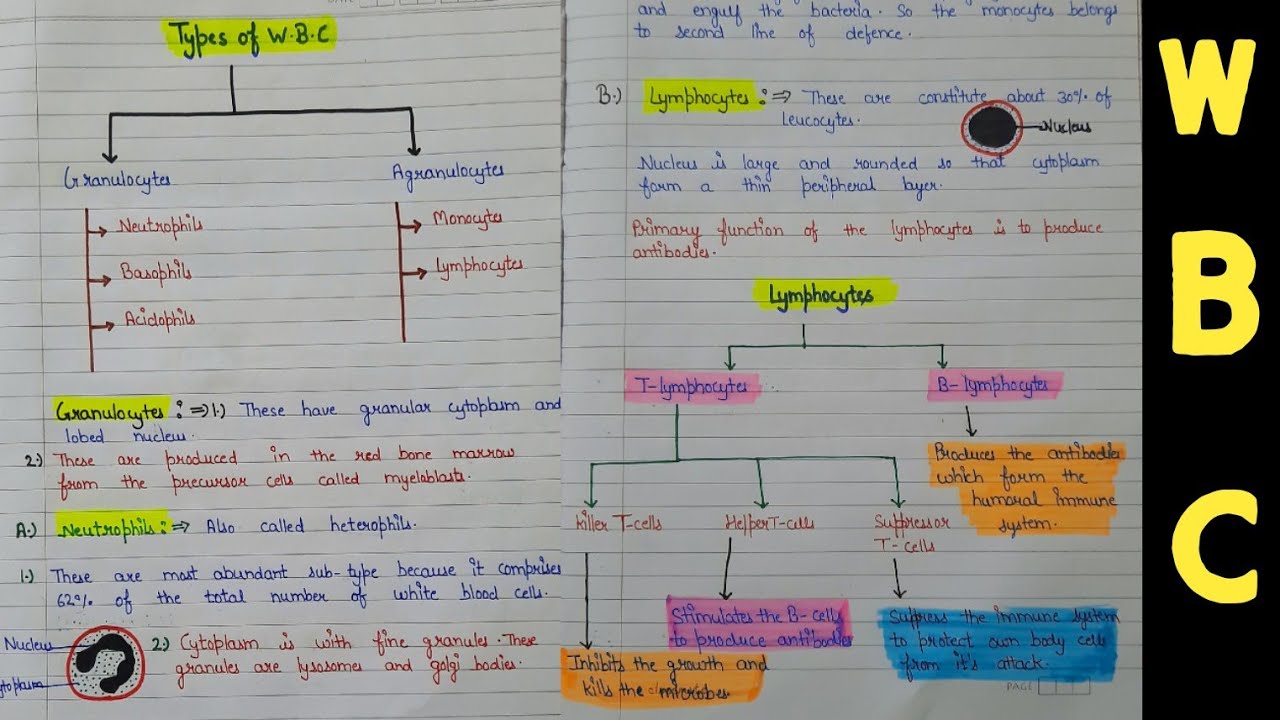 Types of W.B.C
Granulocytes
Agranulocytes
Neutrophils
Basophils
Acidophils
Monocyte
Lymphocytes
Granulocytes :⇒ 1.) These have granular cytoplasm and
lobed nucleus.
2.) These are produced in the red bone marrow
from the precursor cells called myeloblasts.
A.) Neutrophils:⇒ Also called heterophils.
1.) These are most abundant sub-type because it comprises
62% of the total number of white blood cells.
Nucleus
cytoplasm
2.) Cytoplasm is with fine granules. These
granules are lysosomes and golgi bodies.
and engulf the bacteria. So the monocytes belongs
to second line of defence.
B.) Lymphocytes :⇒ These are constitute about 30% of
leucocytes.
Nucleus
Nucleus is large and rounded so that cytoplasm
form a thin peripheral layer.
Primary function of the lymphocytes is to produce
antibodies.
Lymphocytes
T-lymphocytes
B-lymphocytes
Produces the antibodies
which form the
humoral immune
system.
killer T-cells
Helper T-cells
Suppressor
T-cells
Stimulates the B-cells
to produce antibodies
Suppress the immune system
to protect own body cells
from it's attack.
Inhibits the growth and
kills the microbes.
PAGE
W
B
C